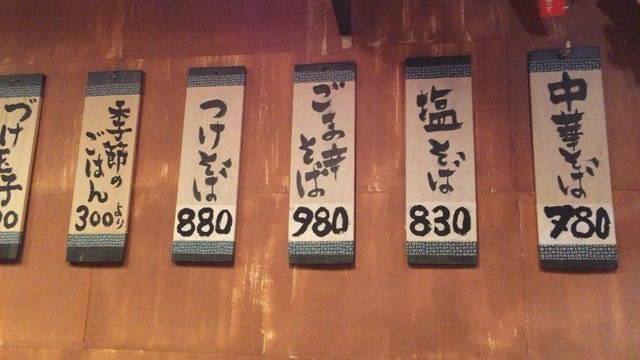 中華そば
780
塩そば
830
ごま辛
そば
980
つけそば
880
季節の
ごはん
300より
づけ玉子
00